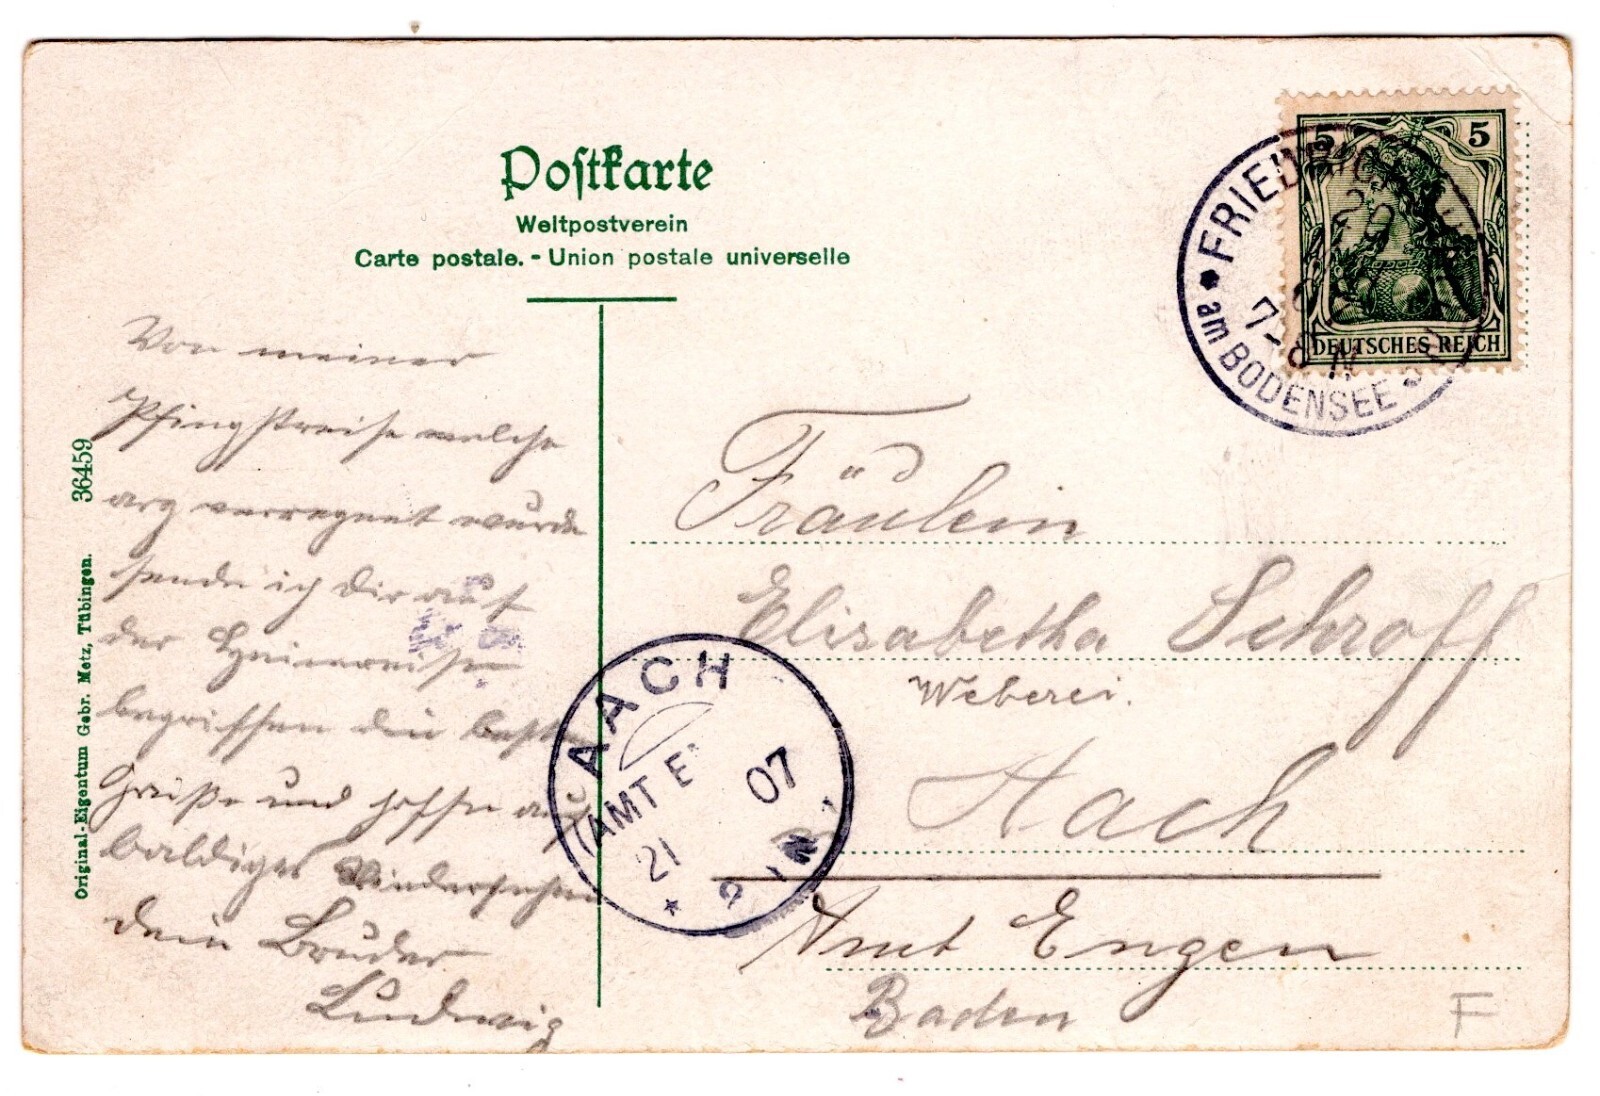 Postkarte
Weltpostverein
Carte postale. - Union postale universelle
5 5
DEUTSCHES REICH
FRIEDRICH
am BODENSEE
7-8 N
Von meiner
Pfingstreise welche
arg verregnet wurde
sende ich Dir auf
der Heimreise
begriffen die besten
Grüße und hoffe auf
baldiges Wiedersehen
dein Bruder
Ludwig
Fräulein
Elisabetha Schroff
Weberei.
Aach
Amt Engen
Baden
F
AACH
(AMT E
21 07
Original-Eigentum Gebr. Metz, Tübingen. 36459